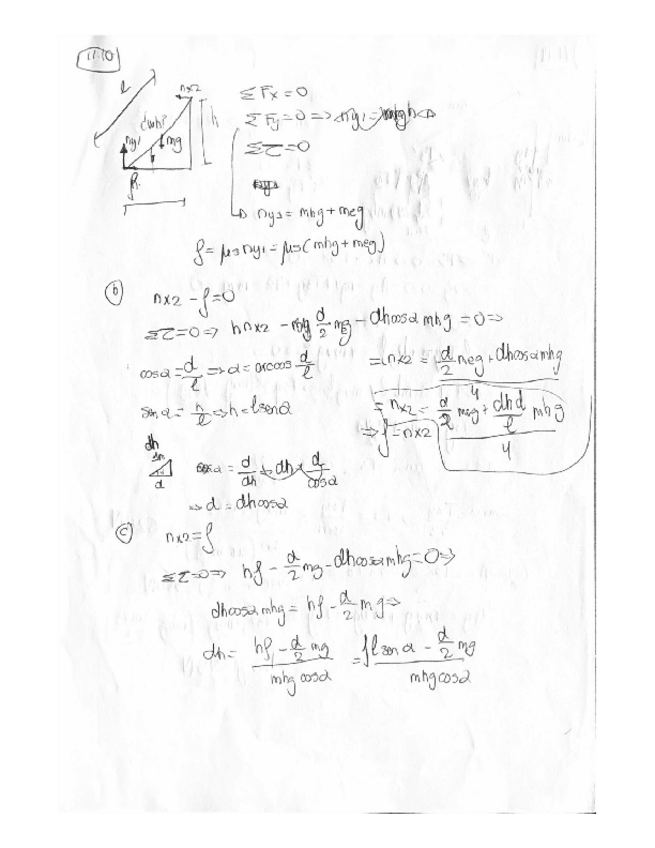 11.10
l
nx2
dh
h
ny1
mg
f
ΣFx=0
ΣFy=0 =>
Στ=0
ny1 = mhg + meg
f = μs ny1 = μs(mhg + meg)
b)
nx2 - f = 0
Στ=0 => h nx2 - d/2 meg - dh cosα mhg = 0 =>
cosα = d/l => α = arccos d/l
= nx2 = (d/2 meg + dh cosα mhg)/h
senα = h/l => h = l senα
= nx2 = (d/2 meg + dh d/l mhg)/h
=> f = nx2
dh
d
cosα = d/dh
d/cosα
=> d = dh cosα
c)
nx2 = f
Στ=0 => hf - d/2 mg - dh cosα mhg = 0 =>
dh cosα mhg = hf - d/2 mg =>
dh = (hf - d/2 mg)/(mhg cosα) = (f l senα - d/2 mg)/(mhg cosα)